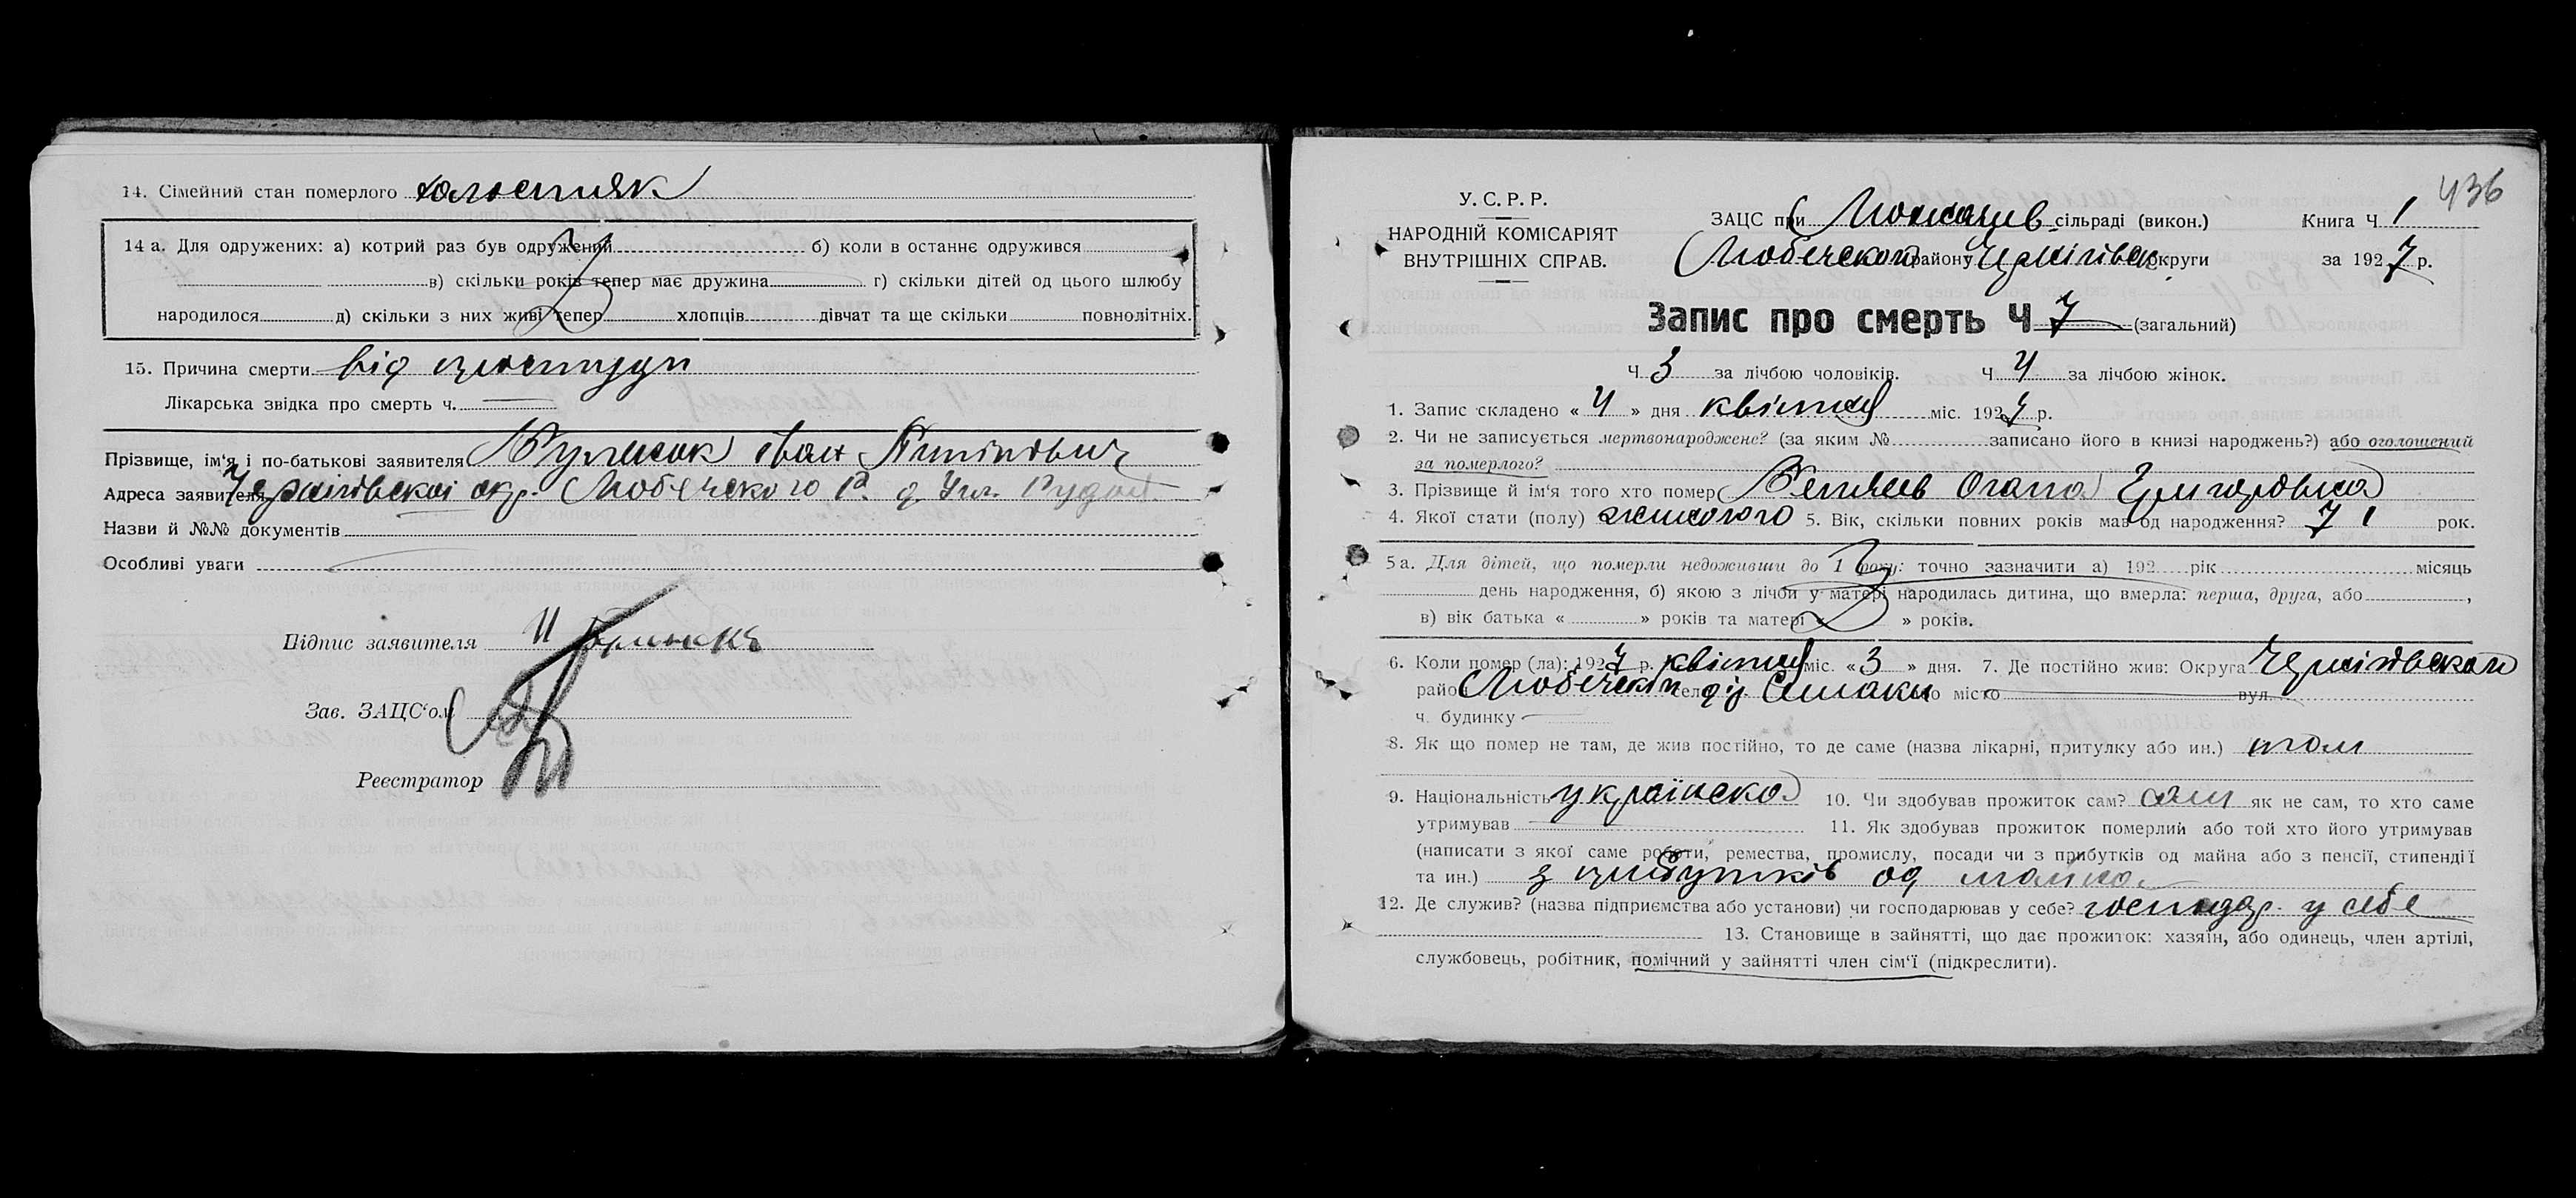 14. Сімейний стан померлого
14 а. Для одружених: а) котрий раз був одружений б) коли в останнє одружився
в) скільки років тепер має дружина г) скільки дітей од цього шлюбу
народилося д) скільки з них живі тепер хлопців дівчат та ще скільки повнолітніх.
15. Причина смерти від простуди
Лікарська звідка про смерть ч.
Прізвище, ім'я і по-батькові заявителя Іван
Адреса заявителя Чернігівскоі окр. Любечского Р.
Назви й №№ документів
Особливі уваги
Підпис заявителя
Зав. ЗАЦС'ом
Реєстратор
436
У. С. Р. Р.
НАРОДНІЙ КОМІСАРІЯТ
ВНУТРІШНІХ СПРАВ.
ЗАЦС при сільраді (викон.) Книга Ч 1
Любечского району Чернігівск округи за 1927 р.
Запис про смерть Ч 7 (загальний)
Ч 3 за лічбою чоловіків. Ч 4 за лічбою жінок.
1. Запис складено « 4 » дня квітня міс. 1927 р.
2. Чи не записується мертвонароджене? (за яким № записано його в книзі народжень?) або оголошений
за померлого?
3. Прізвище й ім'я того хто помер Григоровна
4. Якої статі (полу) жиночого 5. Вік, скільки повних років мав од народження? 71 рок.
5 а. Для дітей, що померли недоживши до 1 року: точно зазначити а) 192 рік місяць
день народження, б) якою з лічби у матері народилась дитина, що вмерла: перша, друга, або ,
в) вік батька « » років та матері « » років.
6. Коли помер (ла): 1927 р. квітня міс. « 3 » дня. 7. Де постійно жив: Округа Чернігівском
район Любечскім
ч. будинку
8. Як що помер не там, де жив постійно, то де саме (назва лікарні, притулку або ин.) там
9. Національність українска 10. Чи здобував прожиток сам? сам як не сам, то хто саме
утримував 11. Як здобував прожиток померлий або той хто його утримував
(написати з якої саме роботи, ремества, промислу, посади чи з прибутків од майна або з пенсії, стипендії
та ин.) з прибутків од майна
12. Де служив? (назва підприємства або установи) чи господарював у себе? господар. у себе
13. Становище в зайнятті, що дає прожиток: хазяїн, або одинець, член артілі,
службовець, робітник, помічний у зайнятті член сім'ї (підкреслити).